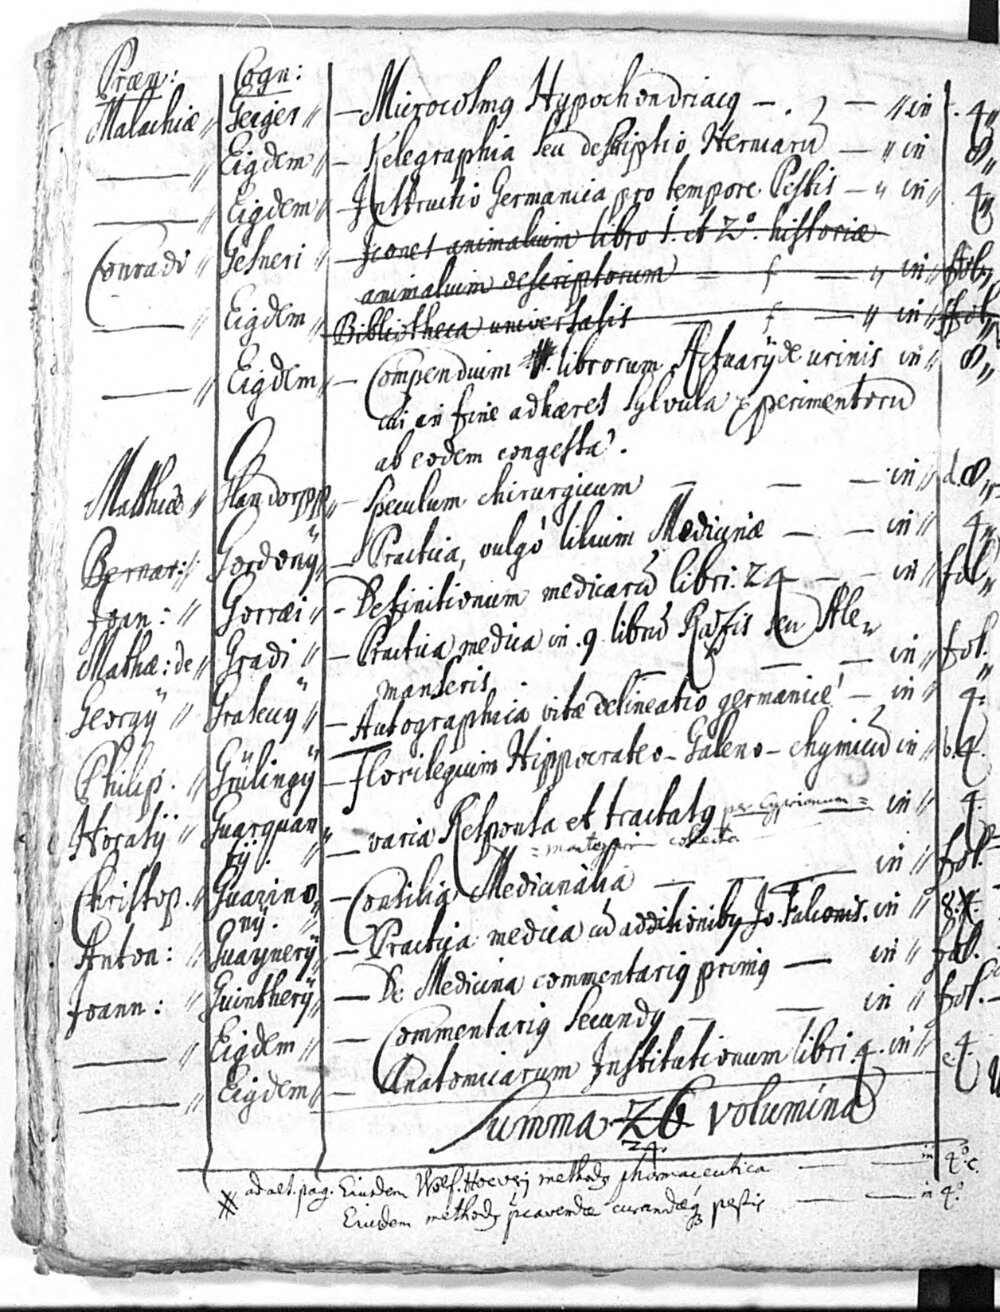 Præn: Cogn:
Malachiæ " Geiger " — Microcosmus Hypochondriacus — . " in . 4 "
— " Eiusdem " — Kelegraphia seu descriptio Herniarū — " in 8 "
— " Eiusdem " — Instructio Germanica pro tempore Pestis — " in " 4
Conradi " Gesneri " Icones animalium libro 1. et 2º. historiæ
animalium descriptorum — — " in " fol "
— " Eiusdem " Bibliotheca universalis — — " in " fol "
— " Eiusdem " — Compendium librorum Actuarÿ de urinis in " 8 "
cui in fine adhæret Sylvula Experimentorū
ab eodem congesta.
G
Matthiæ " Glandorpÿ — Speculum chirurgicum — — in " d. 8 "
Bernar: " Gordonÿ — Practica, vulgo lilium Medicinæ — — in " 4 "
Joan: " Gorræi " — Definitionum medicarū libri. 24 — — in " fol "
Mathæ: de " Gradi " — Practica medica in. 9 librū Razis seu Al-
manseris — — — in " fol.
Georgÿ " — Autographica vitæ delineatio germanicè — in " 4.
Philip. " Grülingÿ — Florilegium Hippocrateo-Galeno-chymicū in b. 4.
Horatÿ " Guarguan
tÿ. " — varia Responsa et tractatus per Cyprianum = in " 4.
= collecta
Christop. " Guazino — Consilia Medicinalia — — — in " fol.
nÿ.
Anton: " Guaynerÿ — Practica medica cū additionibus Jo. Falconis. in " 8.
Joann: " Guintherÿ — De Medicina commentarius primus — in " fol.
— " Eiusdem " — Commentarius Secundus — — in " fol. —
— " Eiusdem " — Anatomicarum Institutionum libri. 4. in " c. 4.
Summa 26 volumina
24.
# ad alt. pag. Eiusdem Wolf. Hoeveri methodus pharmaceutica — — in 4º c.
Eiusdem methodus præcavendæ curandæq pestis — — in 4º